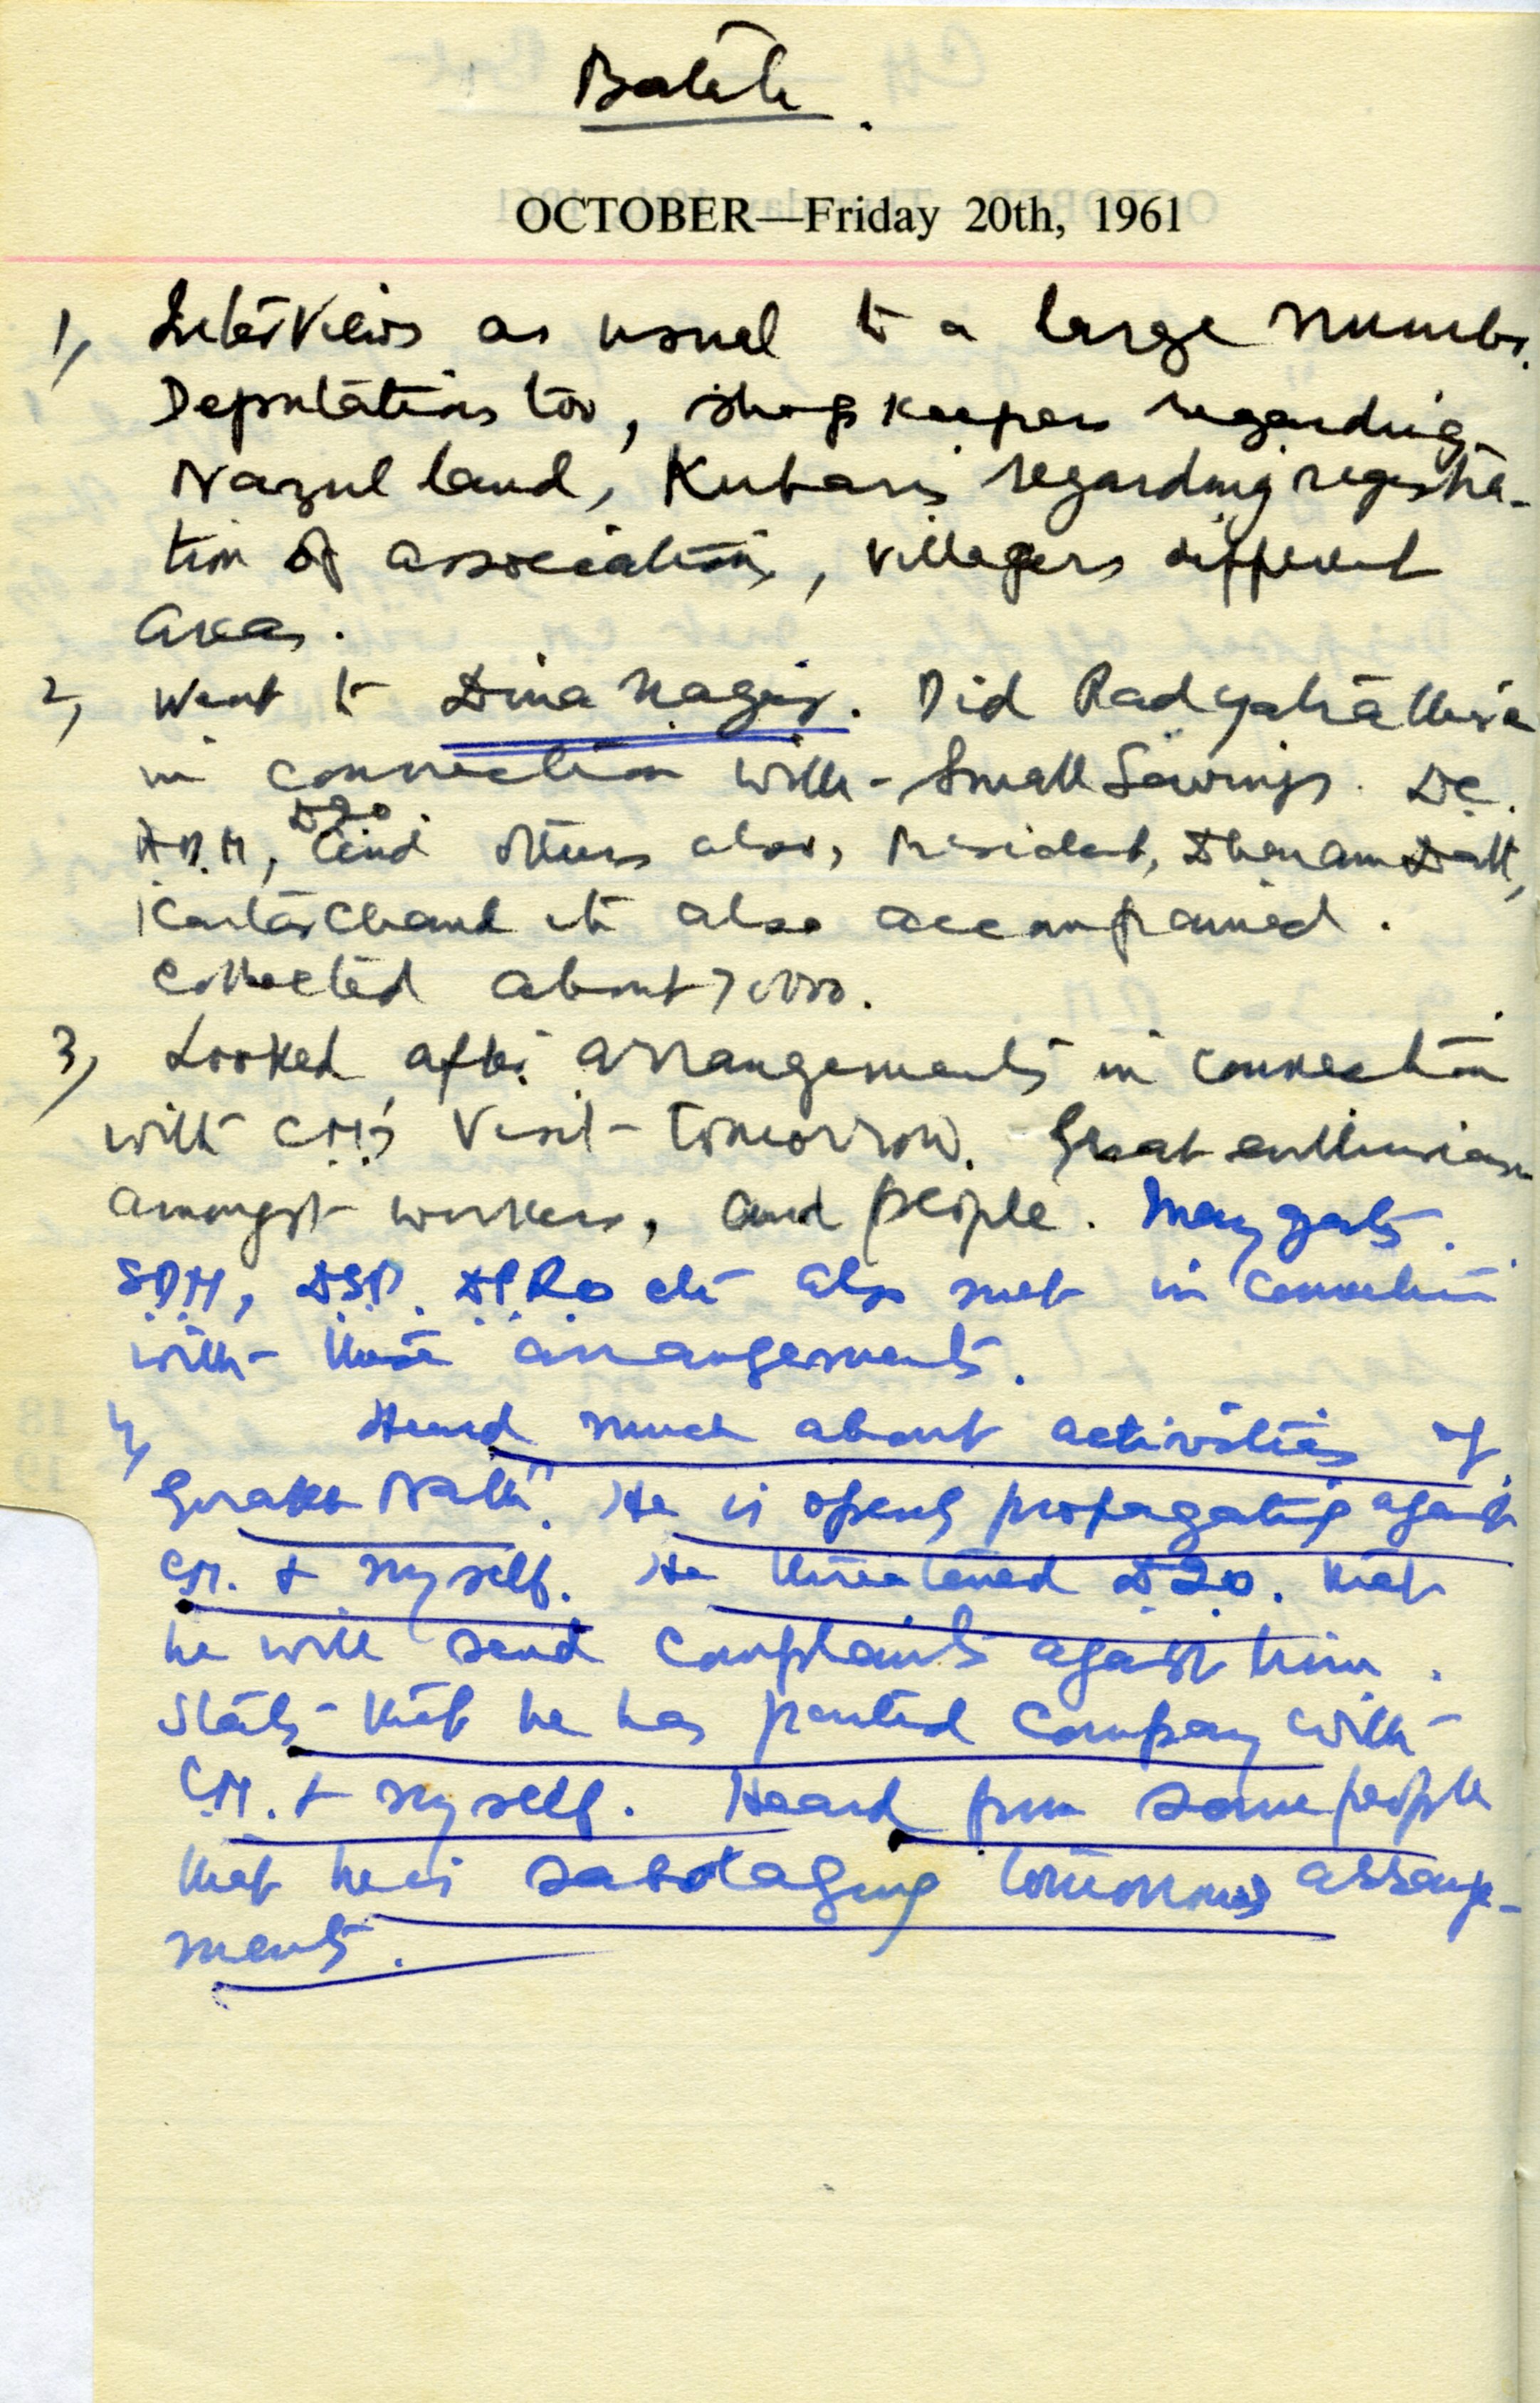 Batala.
OCTOBER—Friday 20th, 1961
1, Interviews as usual to a large number.
Deputations too, shopkeepers regarding
Nazul land, Kubaris regarding registra-
tion of association, villagers different
areas.
2, Went to Dina Nagar. Did Padyatra there
in connection with Small Savings. DC.
A.D.M, and others also, President, Dharam Datt,
Kartar Chand etc also accompanied.
Collected about 7000.
3, Looked after arrangements in connection
with CM's visit tomorrow. Great enthusiasm
amongst workers, and people. Many gates.
S.D.M, D.S.P. D.P.R.O etc also met in connection
with these arrangements.
4, Heard much about activities of
Gorakh Nath". He is openly propagating against
CM. + myself. He threatened that
he will send complaints against him.
States that he has parted company with
C.M. + myself. Heard from some people
that he is sabotaging tomorrows arrange-
ments.